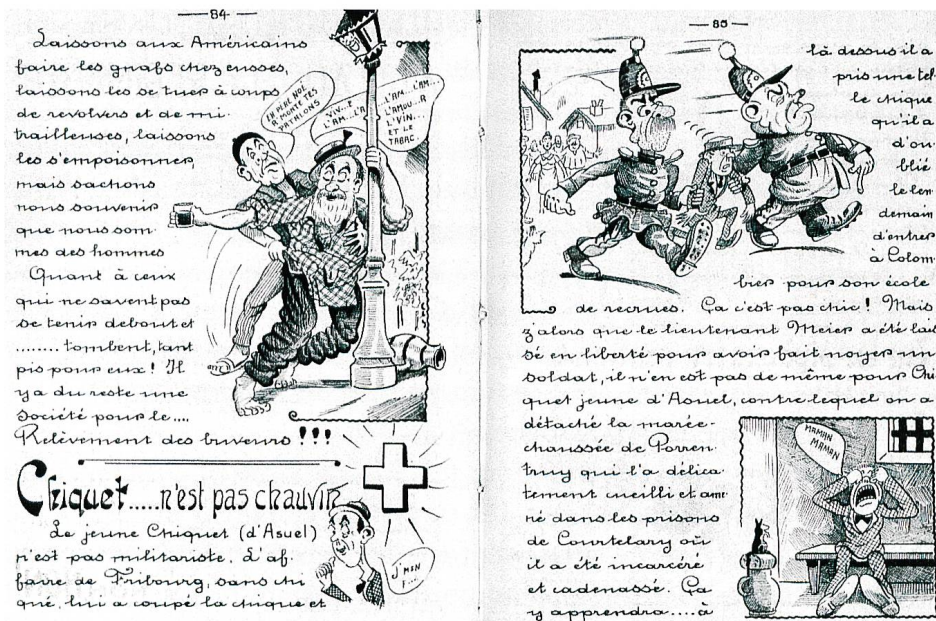 — 84 —
Laissons aux Américains
faire les gnafs chez eusses,
laissons les se tuer à coups
de revolvers et de mi-
trailleuses, laissons
les s'empoisonner,
mais sachons
nous souvenir
que nous som-
mes des hommes
Quant à ceux
qui ne savent pas
se tenir debout et
........ tombent, tant
pis pour eux! Il
y a du reste une
Société pour le ....
Relèvement des buveurs !!!
EH PÈRE NOÉ
REMONTE TES
PATALONS
VIN...E
L'AM...L'A
L'AM... L'AM...
L'AMOU...R
L'VIN...
ET LE
TABAC.
Chiquet.....n'est pas chauvin
Le jeune Chiquet (d'Asuel)
n'est pas militariste. L'af-
faire de Fribourg, sans chi
qué, lui a coupé la chique et
J'M'EN
F...
— 85 —
là dessus il a
pris une tel-
le chique
qu'il a
d'ou-
blié
le len
demain
d'entrer
à Colom-
bier pour son école
de recrues. Ça c'est pas chic! Mais
z'alors que le lieutenant Meier a été lais
sé en liberté pour avoir fait noyer un
soldat, il n'en est pas de même pour Chi
quet jeune d'Asuel, contre lequel on a
détaché la maré-
chaussée de Porren-
truy qui l'a délica-
tement cueilli et ame
né dans les prisons
de Courtelary où
il a été incarcéré
et cadenassé. Ça
y apprendra....à
MAMAN
MAMAN